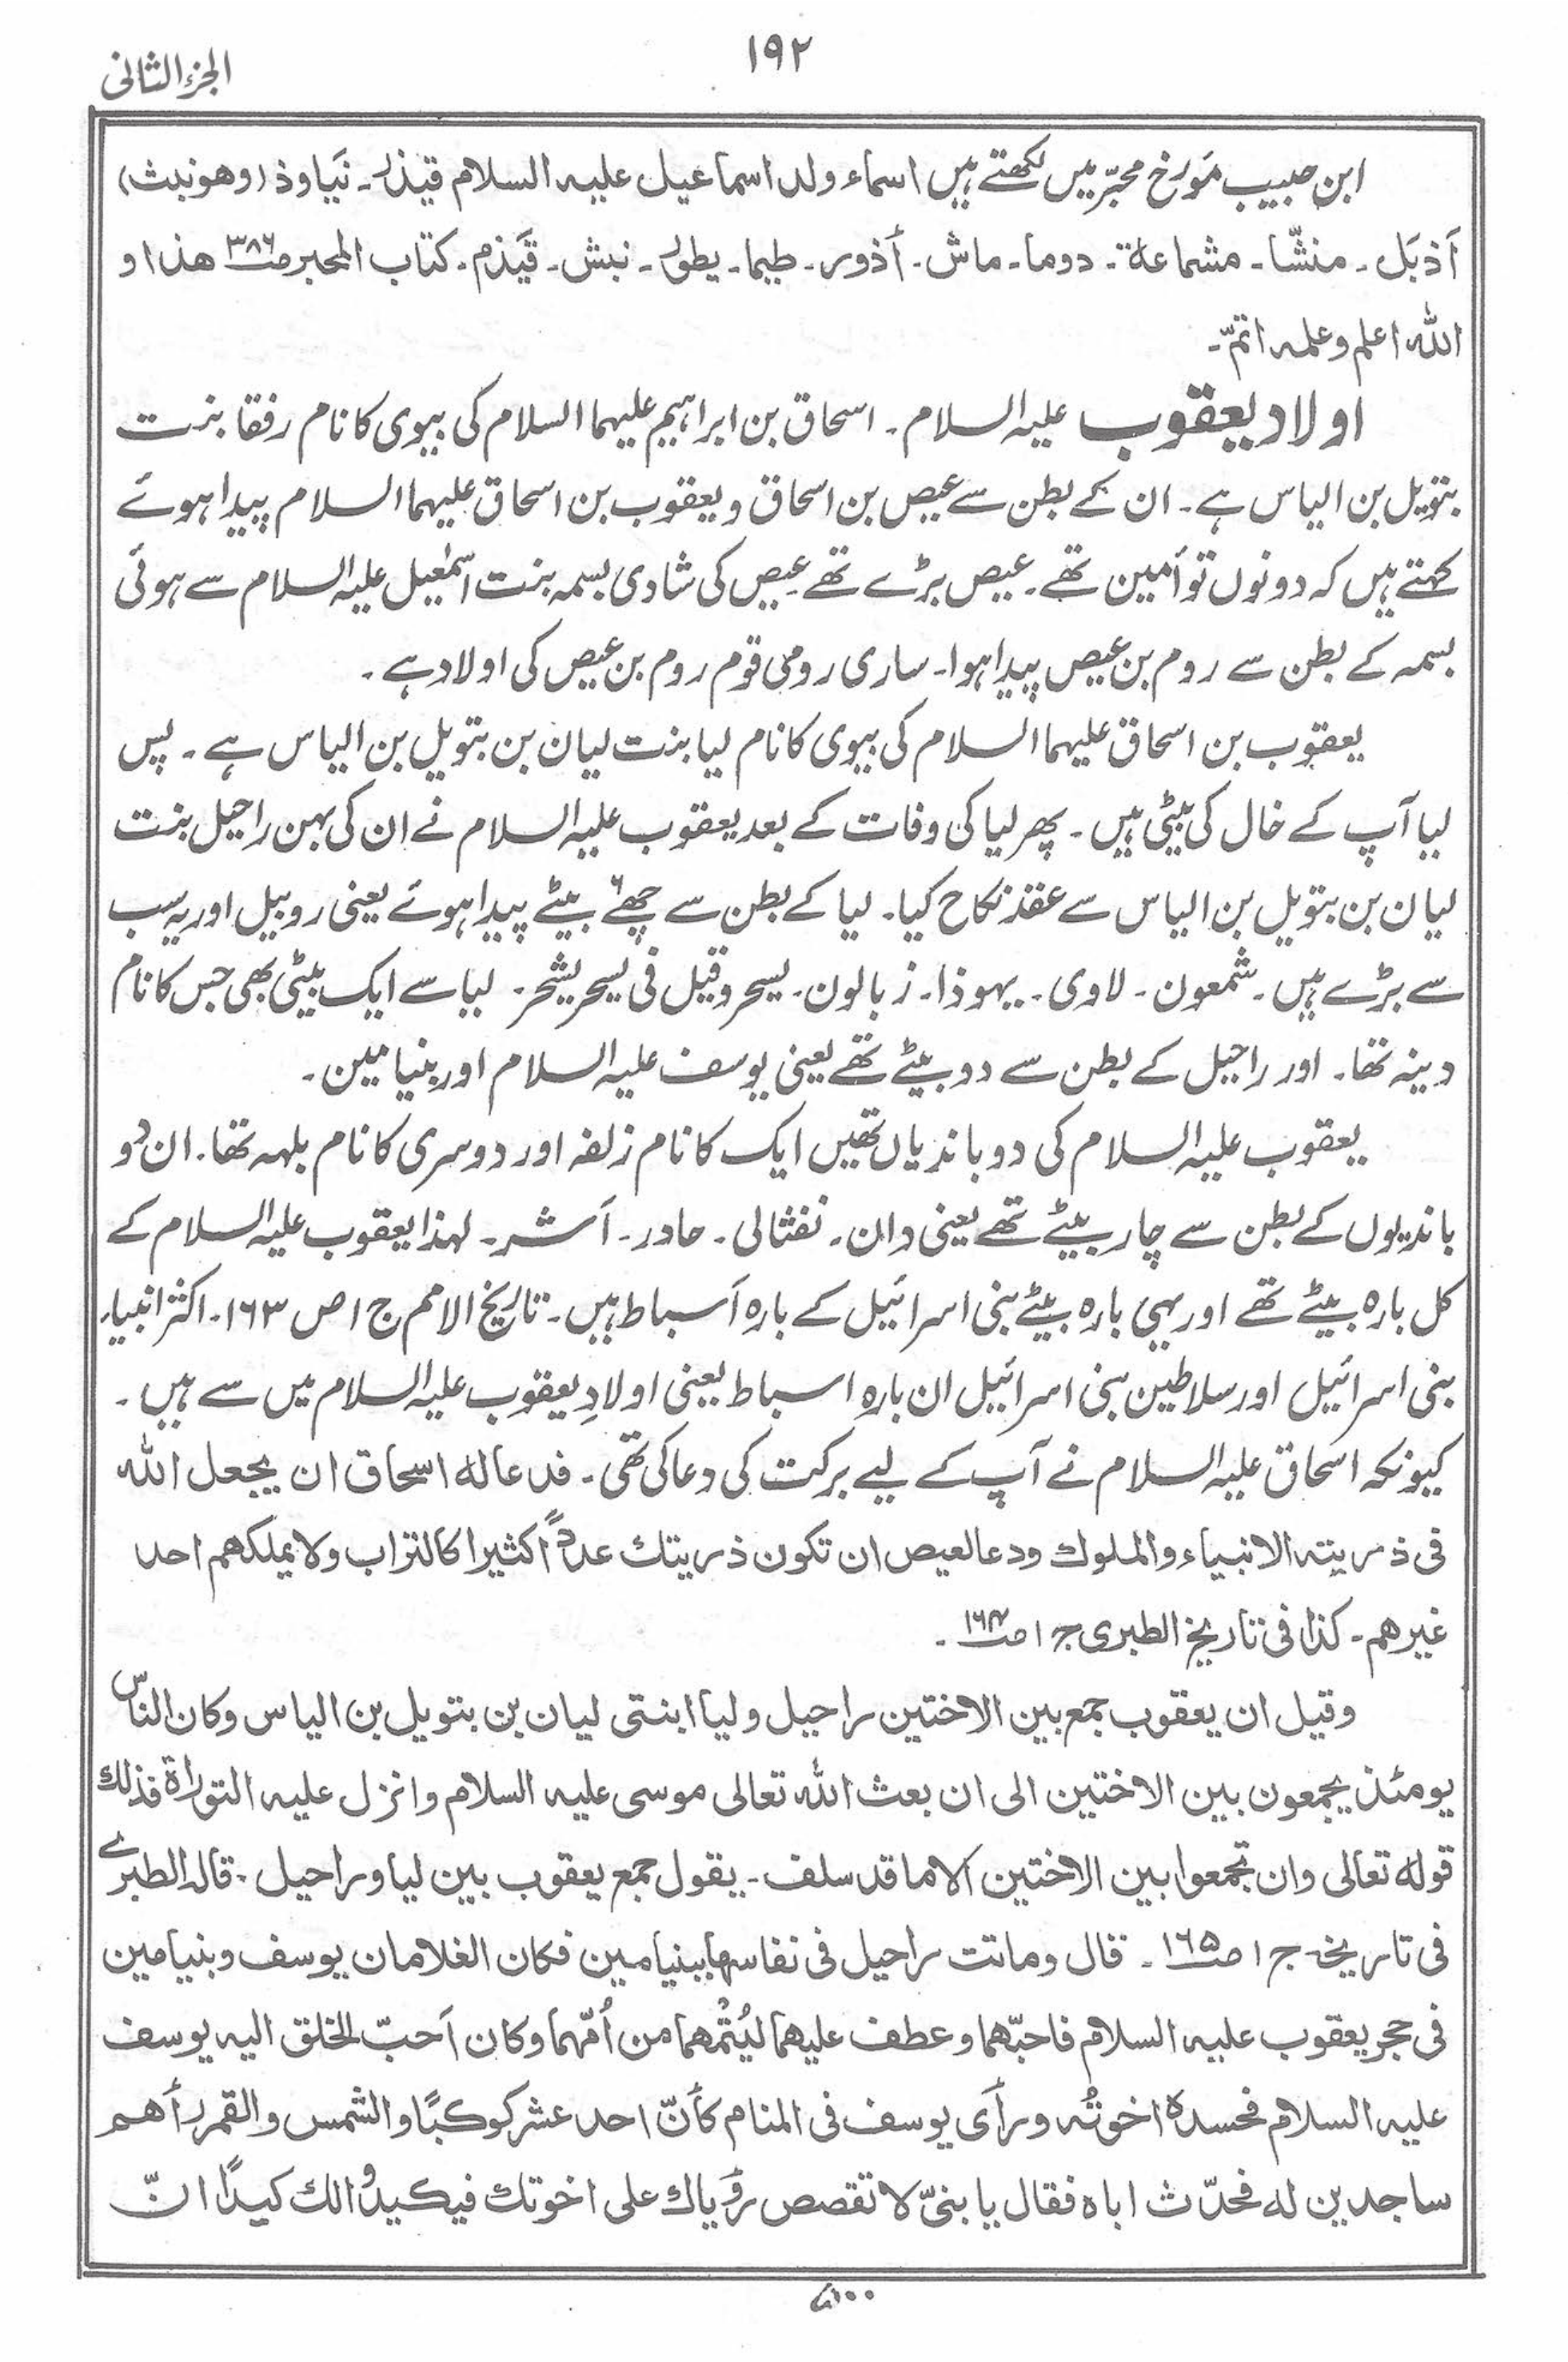 ۱۹۲
الجزء الثانی
ابن حبیب مؤرخ محبّر میں لکھتے ہیں اسماء ولد اسماعیل علیہ السلام قیذر۔ نَیاوذ (وھو نبث)
أَذبَل۔ منشّا۔ مشماعۃ۔ دوما۔ ماش۔ أذور۔ طیما۔ یطور۔ نبش۔ قَیذم۔ کتاب المحبر ص۳۸۶ ھذا و
اللہ اعلم وعلمہ اتمّ۔
اولاد یعقوب علیہ السلام۔ اسحاق بن ابراہیم علیہما السلام کی بیوی کا نام رفقا بنت
بتویل بن الیاس ہے۔ ان کے بطن سے عیص بن اسحاق و یعقوب بن اسحاق علیہما السلام پیدا ہوئے
کہتے ہیں کہ دونوں توأمین تھے۔ عیص بڑے تھے عیص کی شادی بسمہ بنت اسمٰعیل علیہ السلام سے ہوئی
بسمہ کے بطن سے روم بن عیص پیدا ہوا۔ ساری رومی قوم روم بن عیص کی اولاد ہے۔
یعقوب بن اسحاق علیہما السلام کی بیوی کا نام لیا بنت لیان بن بتویل بن الیاس ہے۔ پس
لیا آپ کے خال کی بیٹی ہیں۔ پھر لیا کی وفات کے بعد یعقوب علیہ السلام نے ان کی بہن راحیل بنت
لیان بن بتویل بن الیاس سے عقد نکاح کیا۔ لیا کے بطن سے چھ۶ بیٹے پیدا ہوئے یعنی روبیل اور یہ سب
سے بڑے ہیں۔ شمعون۔ لاوی۔ یہوذا۔ زبالون۔ یسحر وقیل فی یسحر یشحر۔ لیا سے ایک بیٹی بھی جس کا نام
دینہ تھا۔ اور راحیل کے بطن سے دو بیٹے تھے یعنی یوسف علیہ السلام اور بنیامین۔
یعقوب علیہ السلام کی دو باندیاں تھیں ایک کا نام زلفہ اور دوسری کا نام بلہہ تھا۔ ان دو
باندیوں کے بطن سے چار بیٹے تھے یعنی دان۔ نفثالی۔ حادر۔ أشر۔ لہذا یعقوب علیہ السلام کے
کل بارہ بیٹے تھے اور یہی بارہ بیٹے بنی اسرائیل کے بارہ أسباط ہیں۔ تاریخ الامم ج ۱ ص ۱۶۳۔ اکثر انبیاء
بنی اسرائیل اور سلاطین بنی اسرائیل ان بارہ اسباط یعنی اولادِ یعقوب علیہ السلام میں سے ہیں۔
کیونکہ اسحاق علیہ السلام نے آپ کے لیے برکت کی دعا کی تھی۔ فدعا لہ اسحاق ان یجعل اللہ
فی ذریتہ الانبیاء والملوک ودعا لعیص ان تکون ذریتک عدداً کثیرا کالتراب ولا یملکھم احد
غیرھم۔ کذا فی تاریخ الطبری ج ۱ ص۱۶۴۔
وقیل ان یعقوب جمع بین الاختین راحیل ولیا ابنتی لیان بن بتویل بن الیاس وکان الناس
یومئذ یجمعون بین الاختین الی ان بعث اللہ تعالی موسی علیہ السلام وانزل علیہ التوراۃ فذلک
قولہ تعالی وان تجمعوا بین الاختین الا ما قد سلف۔ یقول جمع یعقوب بین لیا وراحیل۔ قالہ الطبری
فی تاریخہ ج ۱ ص۱۶۵۔ قال وماتت راحیل فی نفاسھا ببنیامین فکان الغلامان یوسف وبنیامین
فی حجر یعقوب علیہ السلام فاحبّھما وعطف علیھما لیُتْمھما من أُمّھما وکان أحبّ الخلق الیہ یوسف
علیہ السلام فحسدہ اخوتُہ ورأی یوسف فی المنام کأنّ احد عشر کوکبًا والشمس والقمر رأھم
ساجدین لہ فحدّث اباہ فقال یا بنیّ لا تقصص رؤیاک علی اخوتک فیکیدوا لک کیدًا انّ